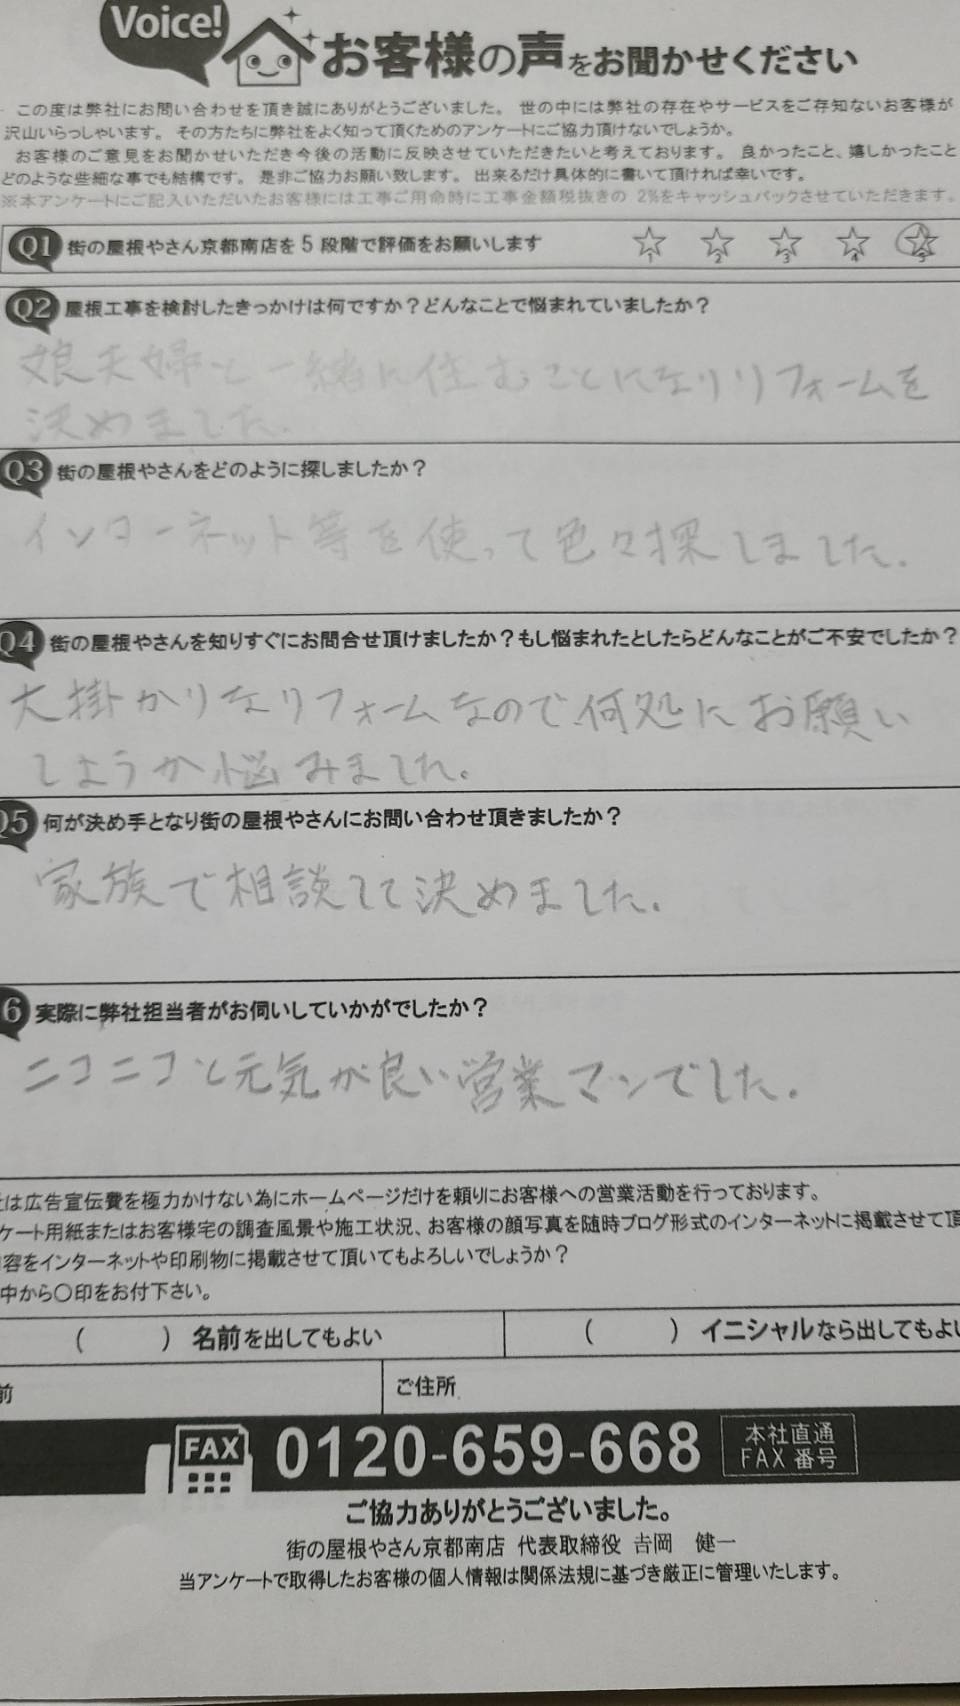 Voice!
お客様の声をお聞かせください
この度は弊社にお問い合わせを頂き誠にありがとうございました。 世の中には弊社の存在やサービスをご存知ないお客様が
沢山いらっしゃいます。 その方たちに弊社をよく知って頂くためのアンケートにご協力頂けないでしょうか。
お客様のご意見をお聞かせいただき今後の活動に反映させていただきたいと考えております。 良かったこと、嬉しかったこと
どのような些細な事でも結構です。 是非ご協力お願い致します。 出来るだけ具体的に書いて頂ければ幸いです。
※本アンケートにご記入いただいたお客様には工事ご用命時に工事金額税抜きの 2%をキャッシュバックさせていただきます。
Q1 街の屋根やさん京都南店を 5 段階で評価をお願いします ☆1 ☆2 ☆3 ☆4 ☆5
Q2 屋根工事を検討したきっかけは何ですか？どんなことで悩まれていましたか？
娘夫婦と一緒に住むことになりリフォームを
決めました。
Q3 街の屋根やさんをどのように探しましたか？
インターネット等を使って色々探しました。
Q4 街の屋根やさんを知りすぐにお問合せ頂けましたか？もし悩まれたとしたらどんなことがご不安でしたか？
大掛かりなリフォームなので何処にお願い
しようか悩みました。
Q5 何が決め手となり街の屋根やさんにお問い合わせ頂きましたか？
家族で相談して決めました。
6 実際に弊社担当者がお伺いしていかがでしたか？
ニコニコと元気が良い営業マンでした。
は広告宣伝費を極力かけない為にホームページだけを頼りにお客様への営業活動を行っております。
ケート用紙またはお客様宅の調査風景や施工状況、お客様の顔写真を随時ブログ形式のインターネットに掲載させて頂
容をインターネットや印刷物に掲載させて頂いてもよろしいでしょうか？
中から〇印をお付下さい。
（　　　）名前を出してもよい （　　　）イニシャルなら出してもよい
前 ご住所
FAX 0120-659-668 本社直通
FAX 番号
ご協力ありがとうございました。
街の屋根やさん京都南店 代表取締役 吉岡 健一
当アンケートで取得したお客様の個人情報は関係法規に基づき厳正に管理いたします。